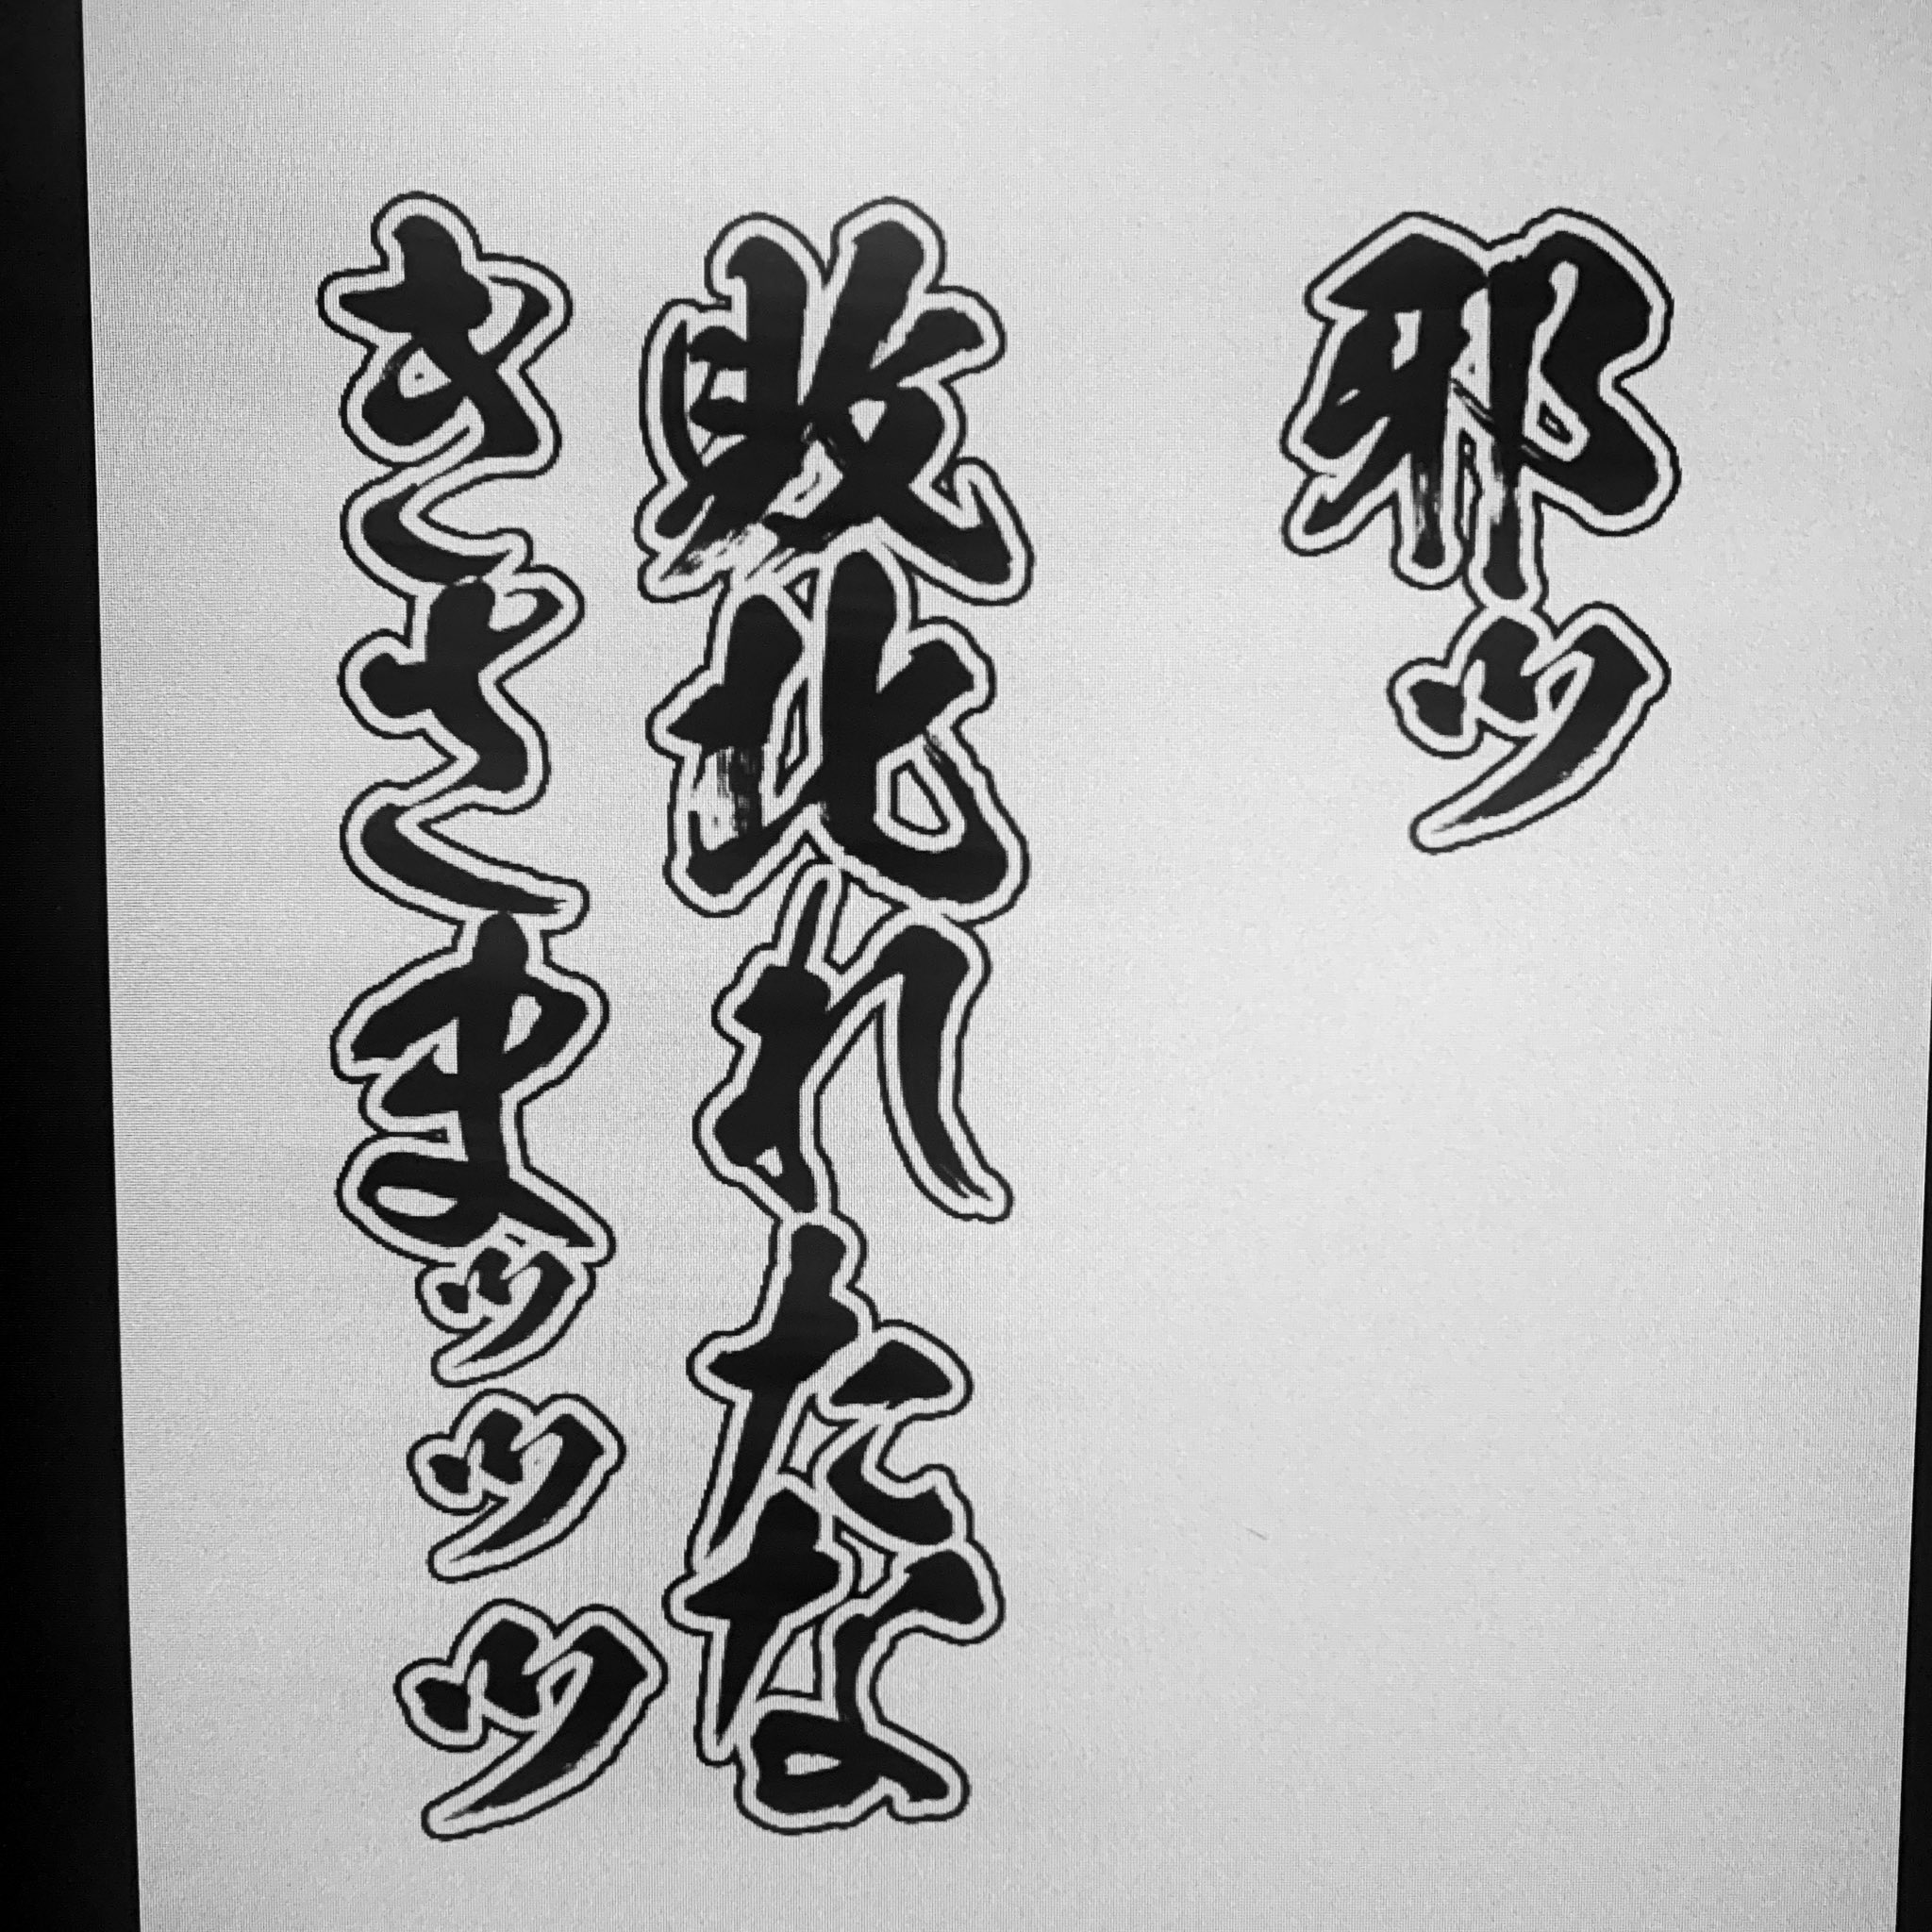 邪ッ
敗北れたな
きさまッッッ